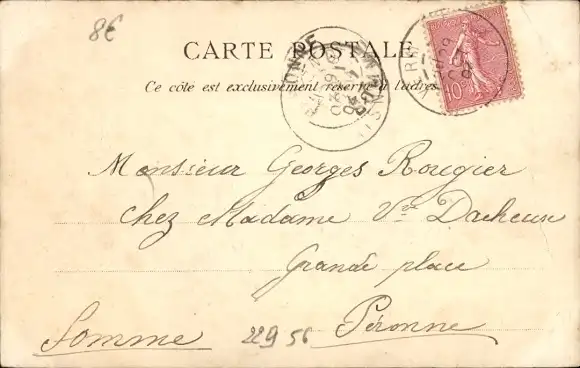 8€
CARTE POSTALE
Ce côté est exclusivement réservé à l'adresse
10
Monsieur Georges Rougier
chez Madame Vve Dacheux
Grande place
Péronne
Somme
229 56